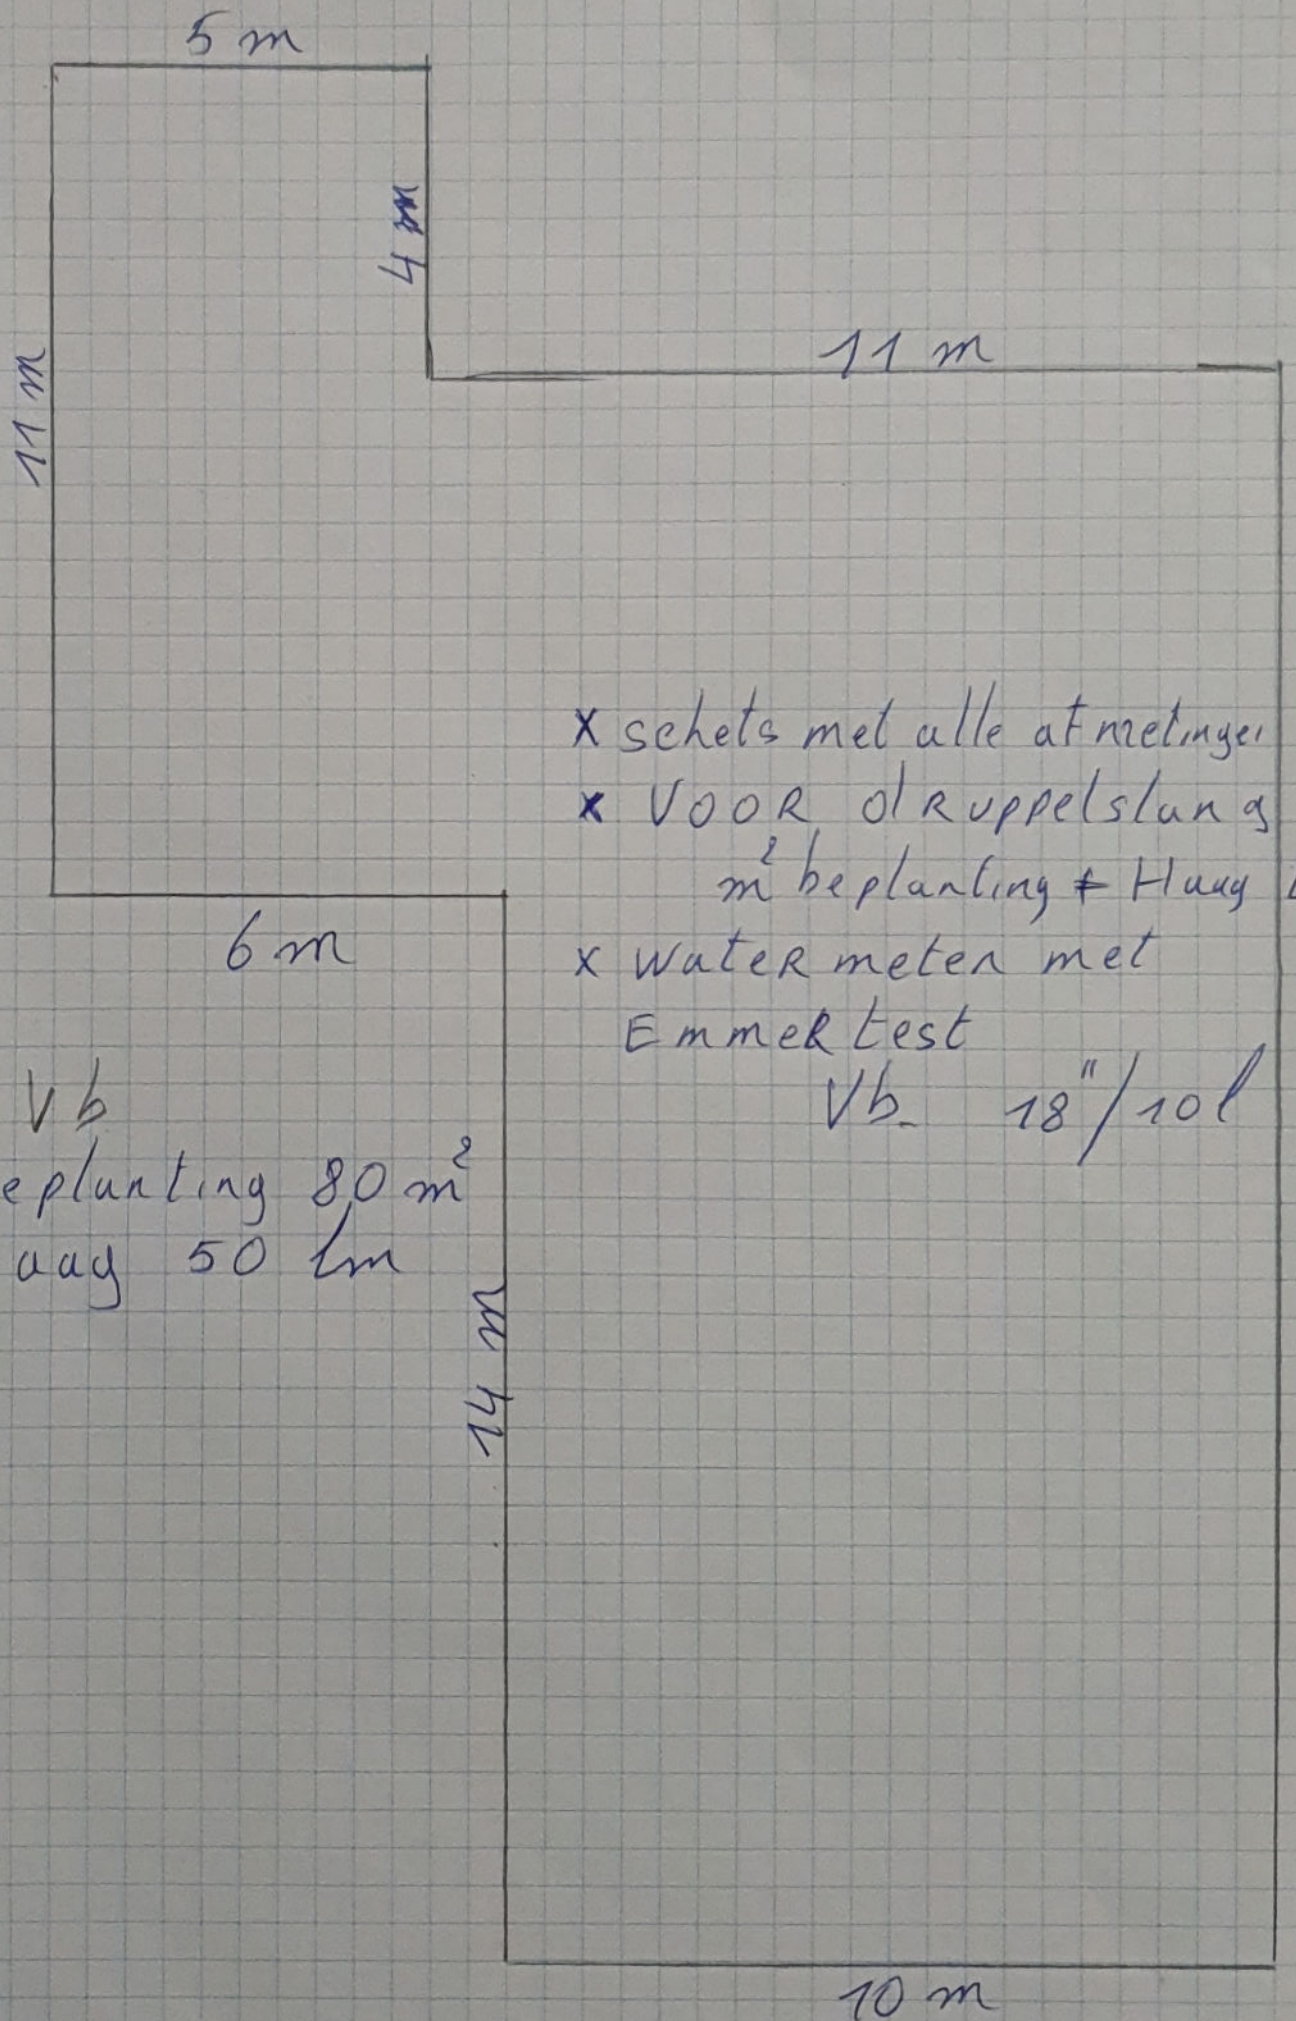 5 m
4 m
11 m
11 m
x schets met alle afmetingen
x VOOR dRuppelslang
m² beplanting + Haag
6 m
x wateR meten met
EmmeR test
Vb. 18"/10l
Vb
eplanting 80 m²
aag 50 lm
14 m
10 m